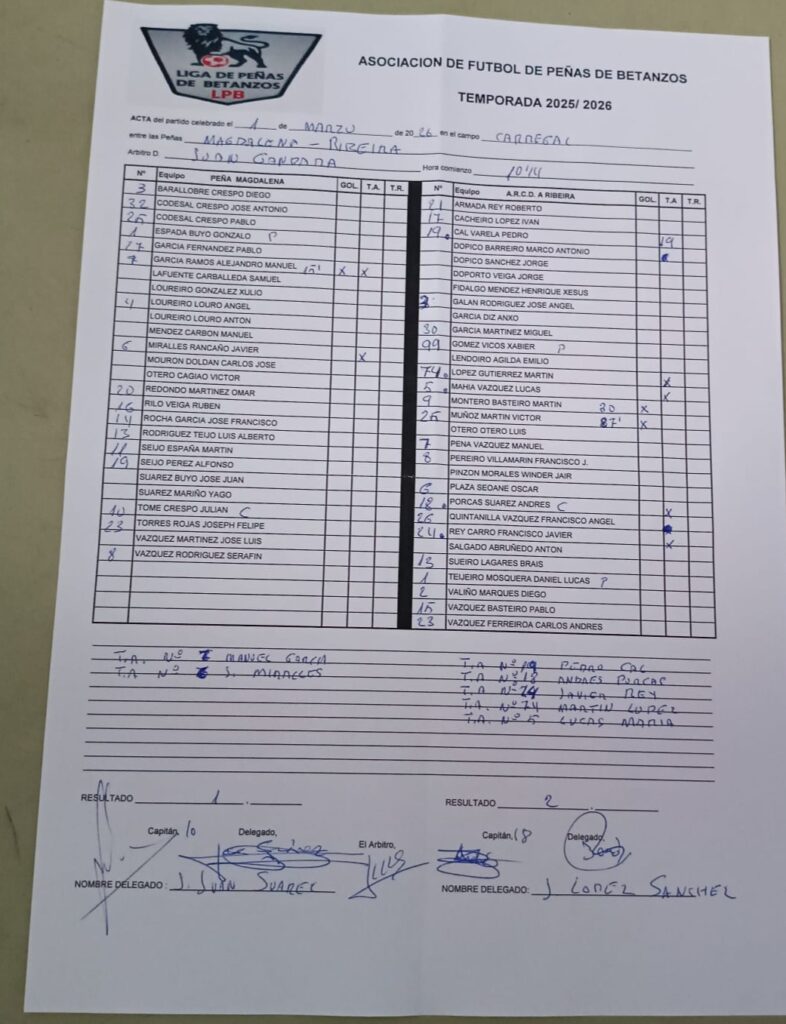 LIGA DE PEÑAS
DE BETANZOS
LPB
ASOCIACION DE FUTBOL DE PEÑAS DE BETANZOS
TEMPORADA 2025/ 2026
ACTA del partido celebrado el 1 de MARZO de 2026 en el campo CARREGAL
entre las Peñas MAGDALENA - RIBEIRA
Arbitro D. JUAN GANDARA Hora comienzo 10'14
Nº Equipo PEÑA MAGDALENA GOL. T.A. T.R.
3 BARALLOBRE CRESPO DIEGO
32 CODESAL CRESPO JOSE ANTONIO
25 CODESAL CRESPO PABLO
1 ESPADA BUYO GONZALO P
27 GARCIA FERNANDEZ PABLO
7 GARCIA RAMOS ALEJANDRO MANUEL 15' X X
LAFUENTE CARBALLEDA SAMUEL
LOUREIRO GONZALEZ XULIO
4 LOUREIRO LOURO ANGEL
LOUREIRO LOURO ANTON
MENDEZ CARBON MANUEL
6 MIRALLES RANCAÑO JAVIER X
MOURON DOLDAN CARLOS JOSE
OTERO CAGIAO VICTOR
20 REDONDO MARTINEZ OMAR
16 RILO VEIGA RUBEN
14 ROCHA GARCIA JOSE FRANCISCO
13 RODRIGUEZ TEIJO LUIS ALBERTO
11 SEIJO ESPAÑA MARTIN
19 SEIJO PEREZ ALFONSO
SUAREZ BUYO JOSE JUAN
SUAREZ MARIÑO YAGO
10 TOME CRESPO JULIAN C
23 TORRES ROJAS JOSEPH FELIPE
VAZQUEZ MARTINEZ JOSE LUIS
8 VAZQUEZ RODRIGUEZ SERAFIN
Nº Equipo A.R.C.D. A RIBEIRA GOL. T.A T.R.
21 ARMADA REY ROBERTO
17 CACHEIRO LOPEZ IVAN
19. CAL VARELA PEDRO 19
DOPICO BARREIRO MARCO ANTONIO
DOPICO SANCHEZ JORGE
DOPORTO VEIGA JORGE
FIDALGO MENDEZ HENRIQUE XESUS
3 GALAN RODRIGUEZ JOSE ANGEL
GARCIA DIZ ANXO
30 GARCIA MARTINEZ MIGUEL
99 GOMEZ VICOS XABIER P
LENDOIRO AGILDA EMILIO
74. LOPEZ GUTIERREZ MARTIN X
5. MAHIA VAZQUEZ LUCAS X
9 MONTERO BASTEIRO MARTIN 30 X
25 MUÑOZ MARTIN VICTOR 87' X
OTERO OTERO LUIS
7 PENA VAZQUEZ MANUEL
8 PEREIRO VILLAMARIN FRANCISCO J.
PINZON MORALES WINDER JAIR
6 PLAZA SEOANE OSCAR
18. PORCAS SUAREZ ANDRES C X
26 QUINTANILLA VAZQUEZ FRANCISCO ANGEL
24. REY CARRO FRANCISCO JAVIER X
SALGADO ABRUÑEDO ANTON
13 SUEIRO LAGARES BRAIS
1 TEIJEIRO MOSQUERA DANIEL LUCAS P
2 VALIÑO MARQUES DIEGO
15 VAZQUEZ BASTEIRO PABLO
23 VAZQUEZ FERREIROA CARLOS ANDRES
T.A. Nº 7 MANUEL GARCIA
T.A Nº 6 J. MIRALLES
T.A Nº 19 PEDRO CAL
T.A Nº 18 ANDRES PORCAS
T.A Nº 24 JAVIER REY
T.A. Nº 74 MARTIN LOPEZ
T.A. Nº 5 LUCAS MAHIA
RESULTADO 1 .
RESULTADO 2 .
Capitán, 10 Delegado, El Arbitro,
Capitán, 18 Delegado,
NOMBRE DELEGADO : J. JUAN SUAREZ
NOMBRE DELEGADO: J LOPEZ SANCHEZ